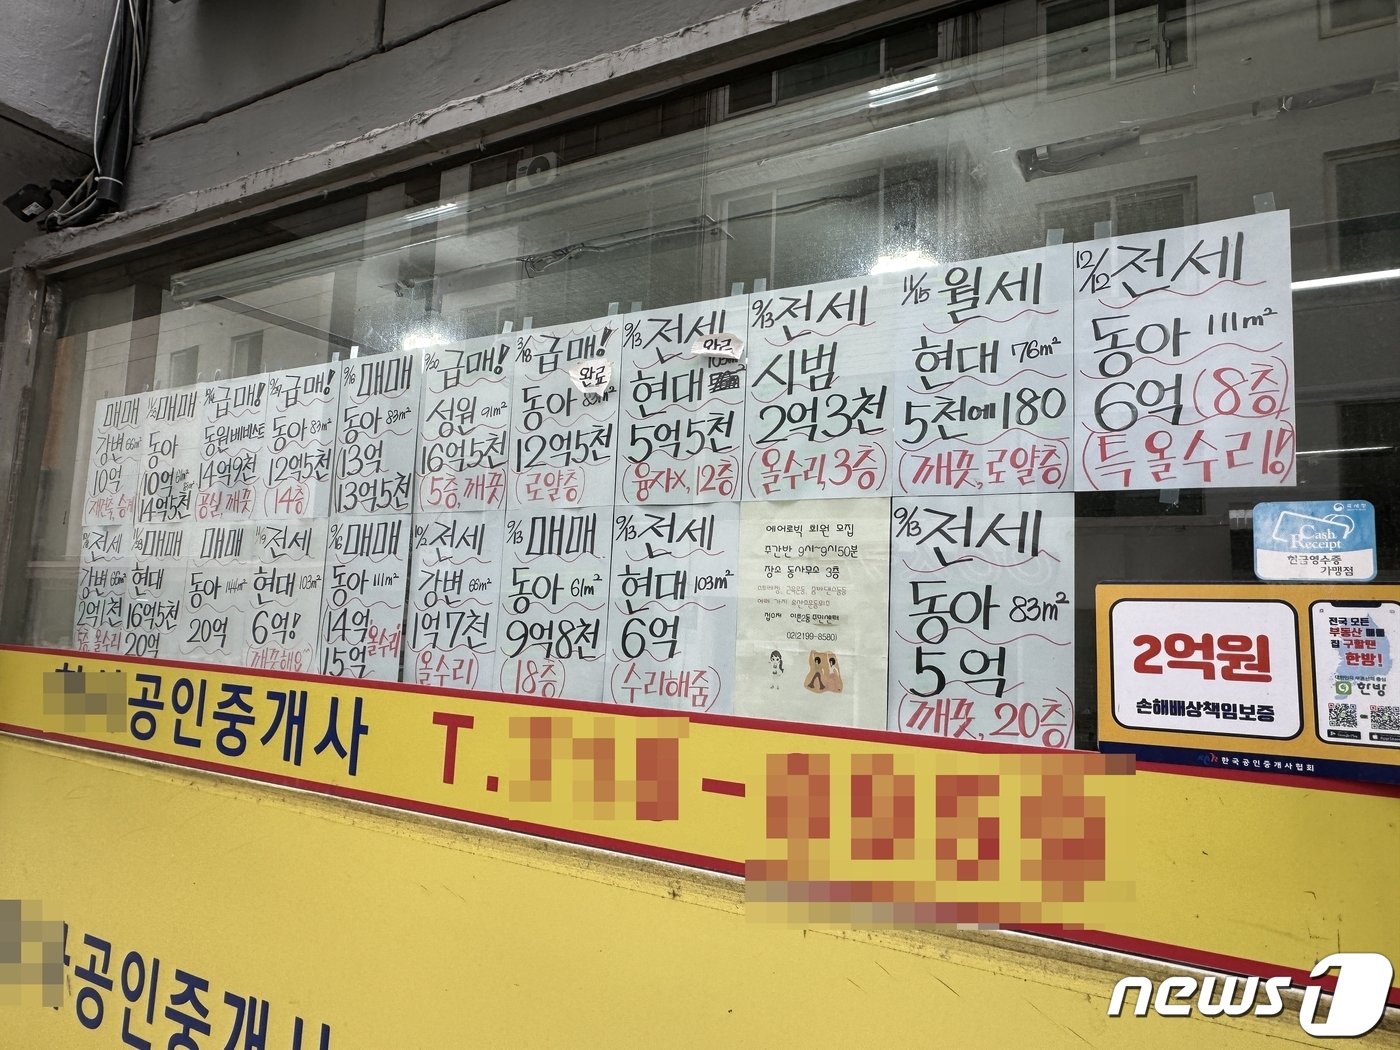 매매
강변 66m²
10억
매매
동아
14억5천
급매!
동원베네스트
14억9천
(공실, 깨끗)
급매!
동아 83m²
12억5천
(14층)
9/16 매매
동아 83m²
13억
13억5천
급매!
성원 91m²
16억5천
(5층, 깨끗)
3/18 급매!
완료
동아 83m²
12억5천
(로얄층)
9/13 전세
완료
현대
5억5천
(융자X, 12층)
9/13 전세
시범
2억3천
(올수리, 3층)
11/15 월세
현대 76m²
5천에 180
(깨끗, 로얄층)
12/12 전세
동아 111m²
6억 (8층)
(특올수리!)
전세
강변 66m²
2억1천
매매
현대
16억5천
20억
매매
동아 144m²
20억
전세
현대 103m²
6억!
(깨끗해요)
9/16 매매
동아 111m²
14억
15억
올수리
10/2 전세
강변 66m²
1억7천
(올수리)
9/13 매매
동아 61m²
9억8천
(18층)
9/13 전세
현대 103m²
6억
(수리해줌)
에어로빅 회원 모집
주간반 9시~9시50분
장소 동사무소 3층
접수처 이촌2동주민센터
02(2199-8580)
9/13 전세
동아 83m²
5억
(깨끗, 20층)
국세청
Cash Receipt
현금영수증
가맹점
2억원
손해배상책임보증
전국 모든
부동산 매물
집 구할땐
한방!
한방
한국공인중개사협회
공인중개사 T.
공인중개사
news1